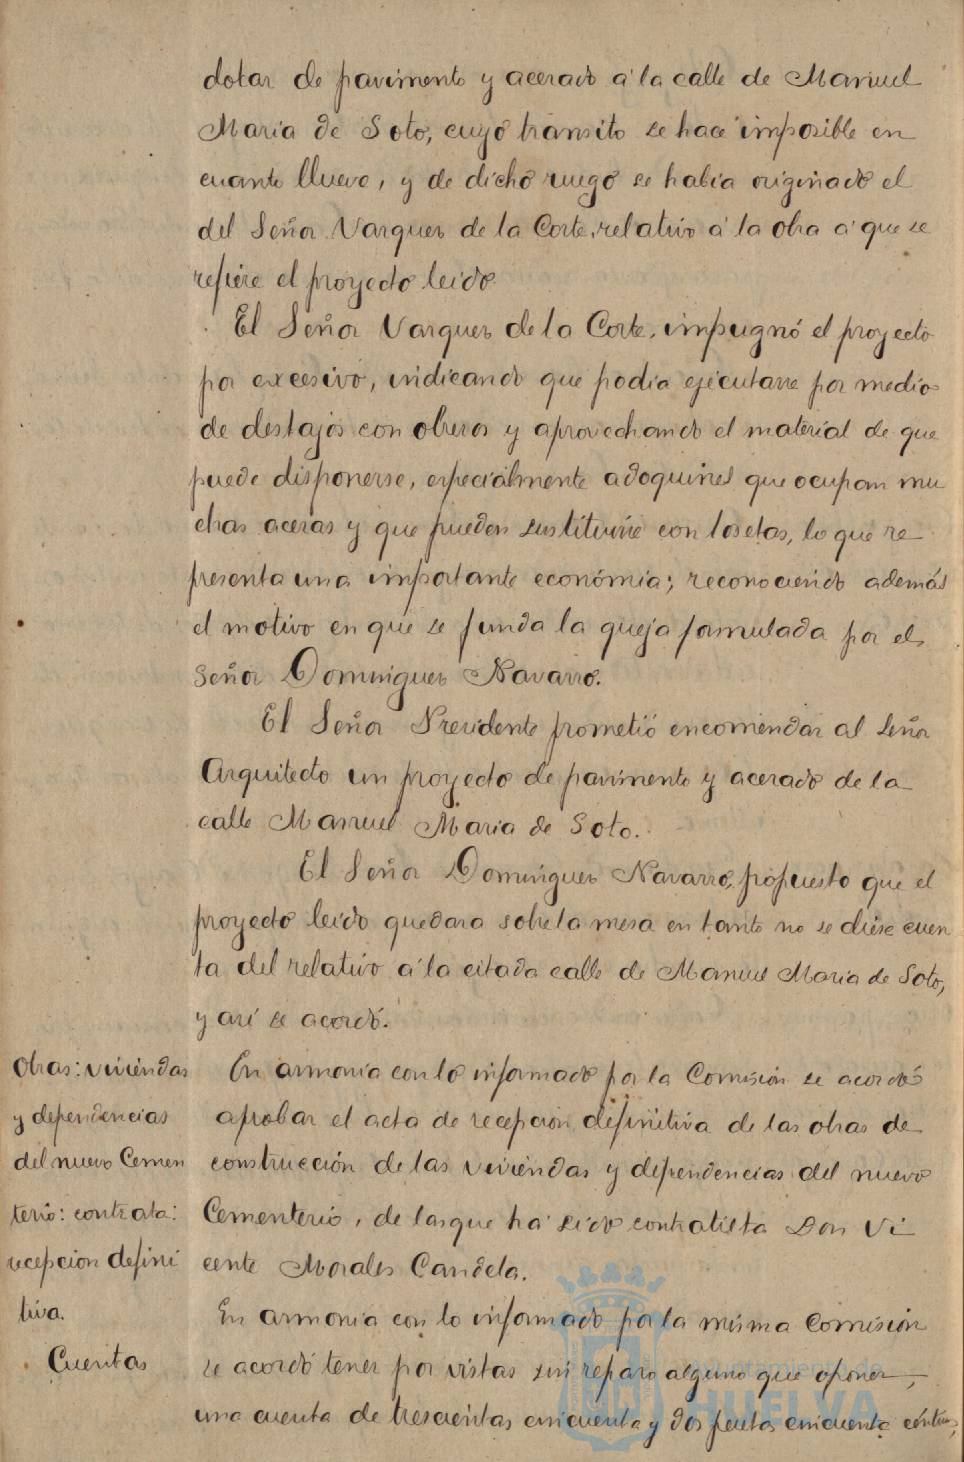 dotar de pavimento y acerado á la calle de Manuel
Maria de Soto, cuyo transito se hace imposible en
cuanto llueve, y de dicho ruego se habia originado el
del Señor Vazquez de la Corte, relativo á la obra á que se
refiere el proyecto leido.
El Señor Vazquez de la Corte, impugnó el proyecto
por excesivo, indicando que podia ejecutarse por medio
de destajos con obreros y aprovechando el material de que
puede disponerse, especialmente adoquines que ocupan mu
chas aceras y que pueden sustituirse con losetas, lo que re
presenta una importante económia; reconociendo además
el motivo en que se funda la queja formulada por el
Señor Dominguez Navarro.
El Señor Presidente prometió encomendar al Señor
Arquitecto un proyecto de pavimento y acerado de la
calle Manuel Maria de Soto.
El Señor Dominguez Navarro, propuesto que el
proyecto leido quedara sobre la mesa en tanto no se diese cuen
ta del relativo á la citada calle de Manuel Maria de Soto,
y así se acordó.
Obras: viviendas
y dependencias
del nuevo Cemen
terio: contrata:
recepcion defini
tiva.
En armonia con lo informado por la Comisión se acordó
aprobar el acta de recepcion definitiva de las obras de
construcción de las viviendas y dependencias del nuevo
Cementerio, de las que ha sido contratista Don Vi
cente Morales Candela.
Cuentas
En armonia con lo informado por la misma Comisión
se acordó tener por vistas sin reparo alguno que oponer,
una cuenta de trescientas cincuenta y dos pesetas cincuenta céntimos,
Ayuntamiento de
HUELVA